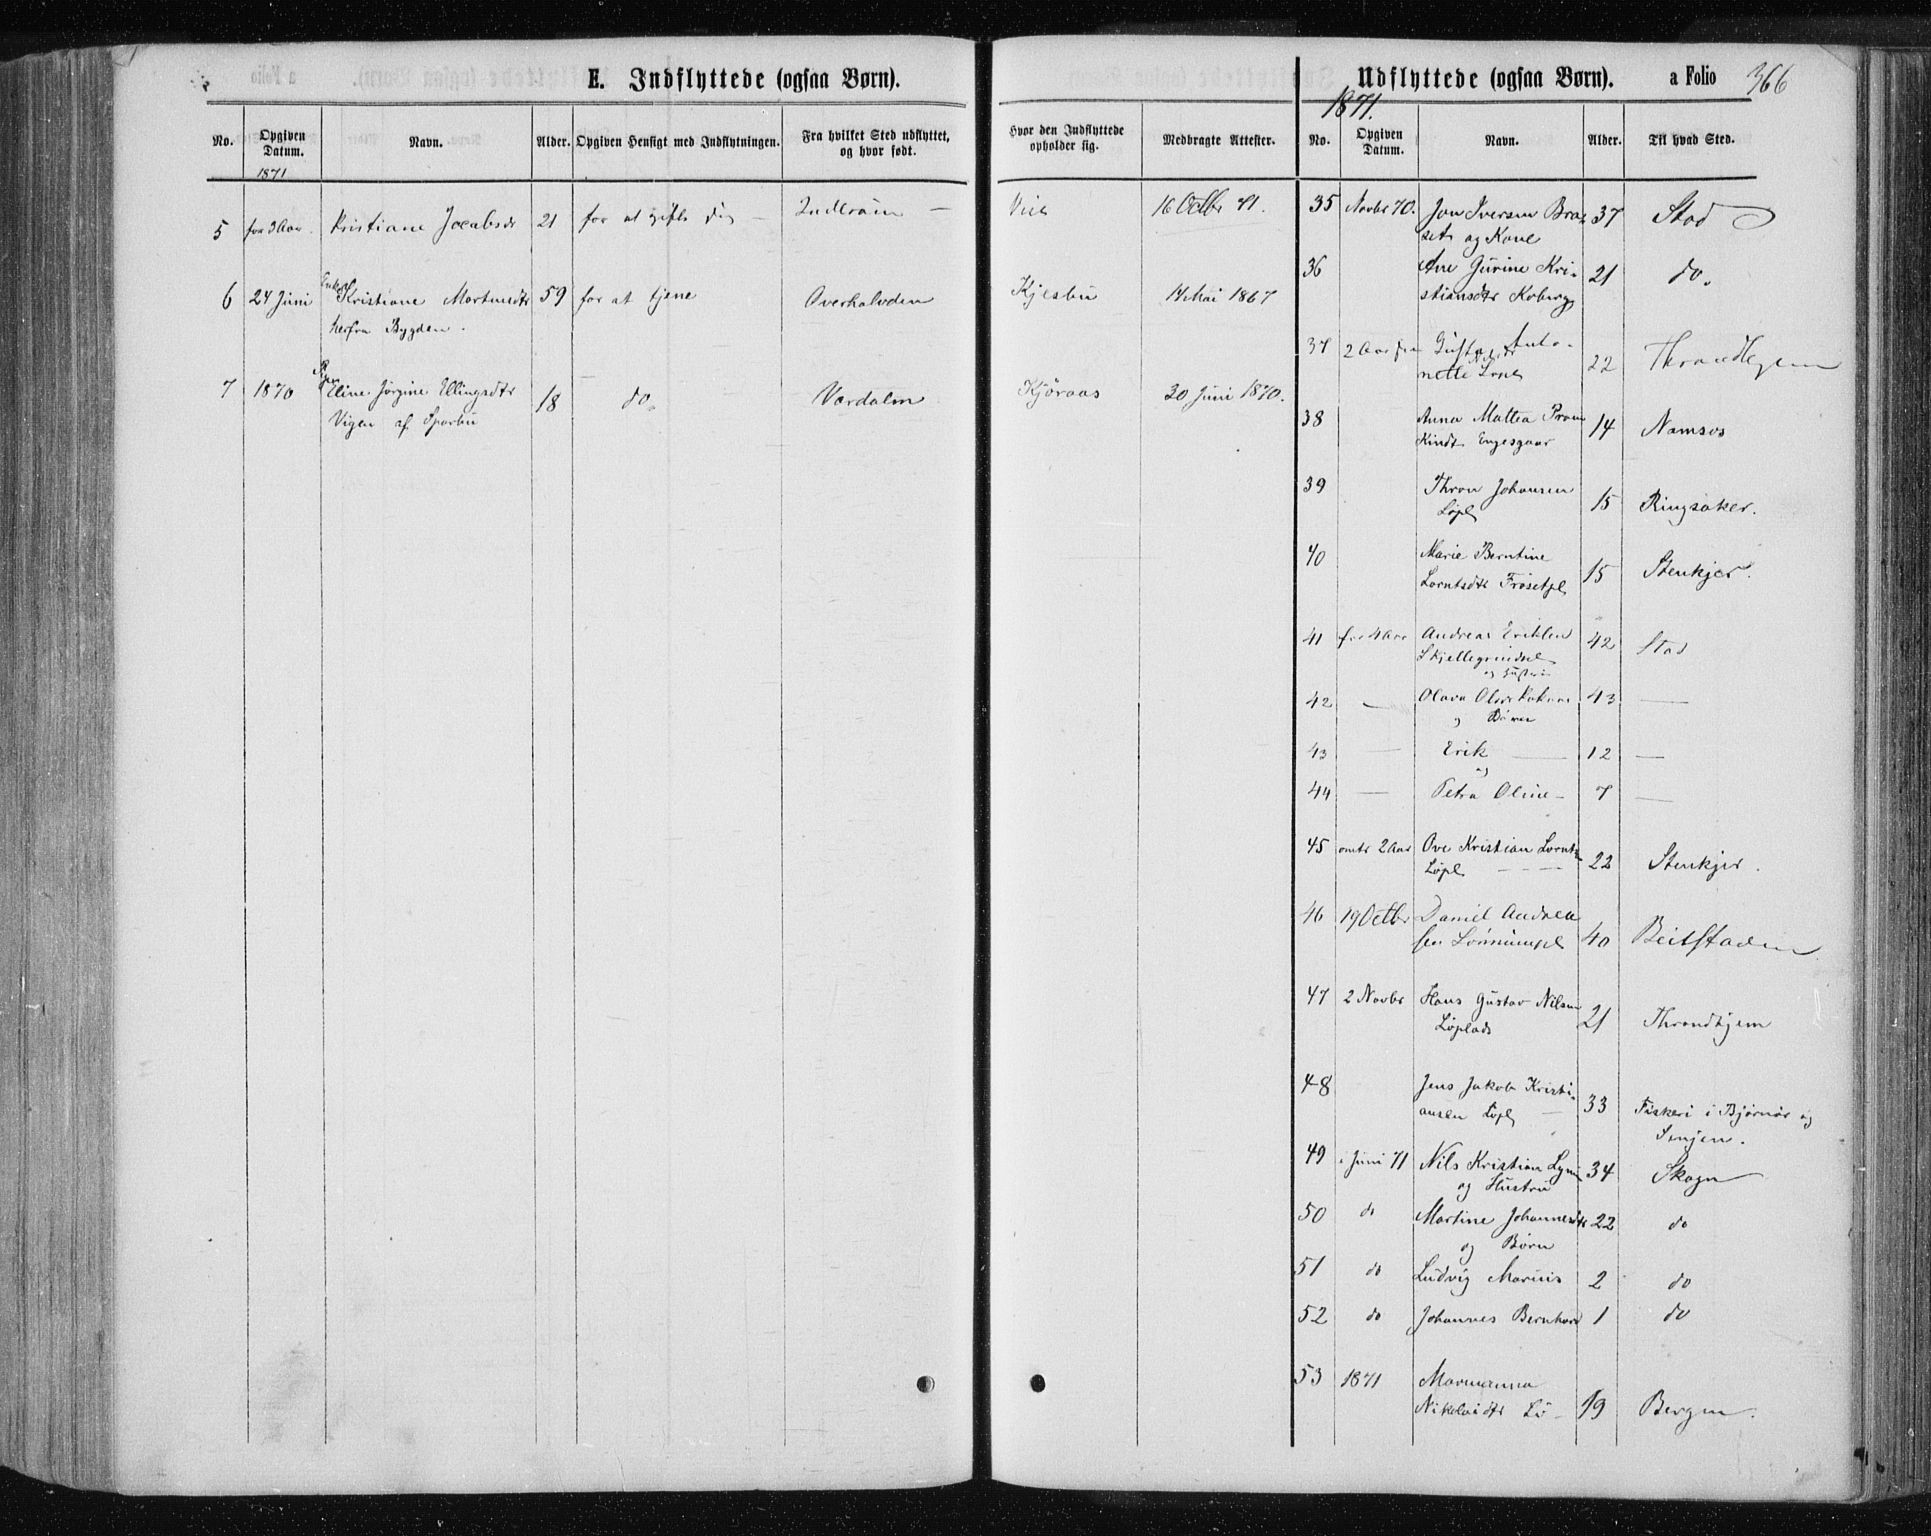 E. Indflyttede (ogsaa Børn).
No. Opgiven Datum. Navn. Alder. Opgiven Hensigt med Indflytningen. Fra hvilket Sted udflyttet, og hvor født.
1871
5 for 3 Aar. Kristiane Jacobsdr 21 for at gifte sig — Inderøen —
6 24 Juni Enke Kristiane Mortensdtr 59 for at tjene Overhalvden
herfra Bygden.
7 1870 Pige Eline Jørgine Ellingsdtr 18 do. Værdalen
Vigen af Sparbu
Udflyttede (ogsaa Børn). a Folio 366
1871.
Hvor den Indflyttede opholder sig. Medbragte Attester. No. Opgiven Datum. Navn. Alder. Til hvad Sted.
16 Octbr 71.
Kjesbu 14 Mai 1867
Kjøraas 20 Juni 1870.
35 Novbr 70. Jon Iversen Bra- 37 Stod
set og Kone
36 Ane Gurine Kri- 21 do.
stiansdtr Koberg
37 2 Aar Gusta Anto- 22 Throndhjem
nette
38 Anna Mattea 14 Namsos
39 Thron Johansen 15 Ringsaker.
Løpl
40 Marie Berntine
Lorntsdtr Frøsetpl 15 Stenkjer.
41 for 4 Aar Andreas Eriksen 42 Stod
og Hustru
42 — Olava 43 —
og Børn
43 — Erik — 12 —
og
44 — Petra Oline — 7 —
45 omtr 2 Aar Ove Kristian Lornts 22 Stenkjer.
Løpl — — —
46 19 Octbr Daniel Andrea
sen 40 Beitstaden
47 2 Novbr Hans Gustav Nilsen 21 Throndhjem
Løplads
48 Jens Jakob Kristi-
ansen Løpl — 33 Fiskeri i Bjørnør og
Senjen.
49 i Juni 71 Nils Kristian 34 Skogn
og Hustru
50 do Martine Johannesdtr 22 do
og Børn
51 do Ludvig Marius 2 do
52 do Johannes Bernhard 1 do
53 1871 Marmanna
Nikolaidtr Lø- 19 Bergen.